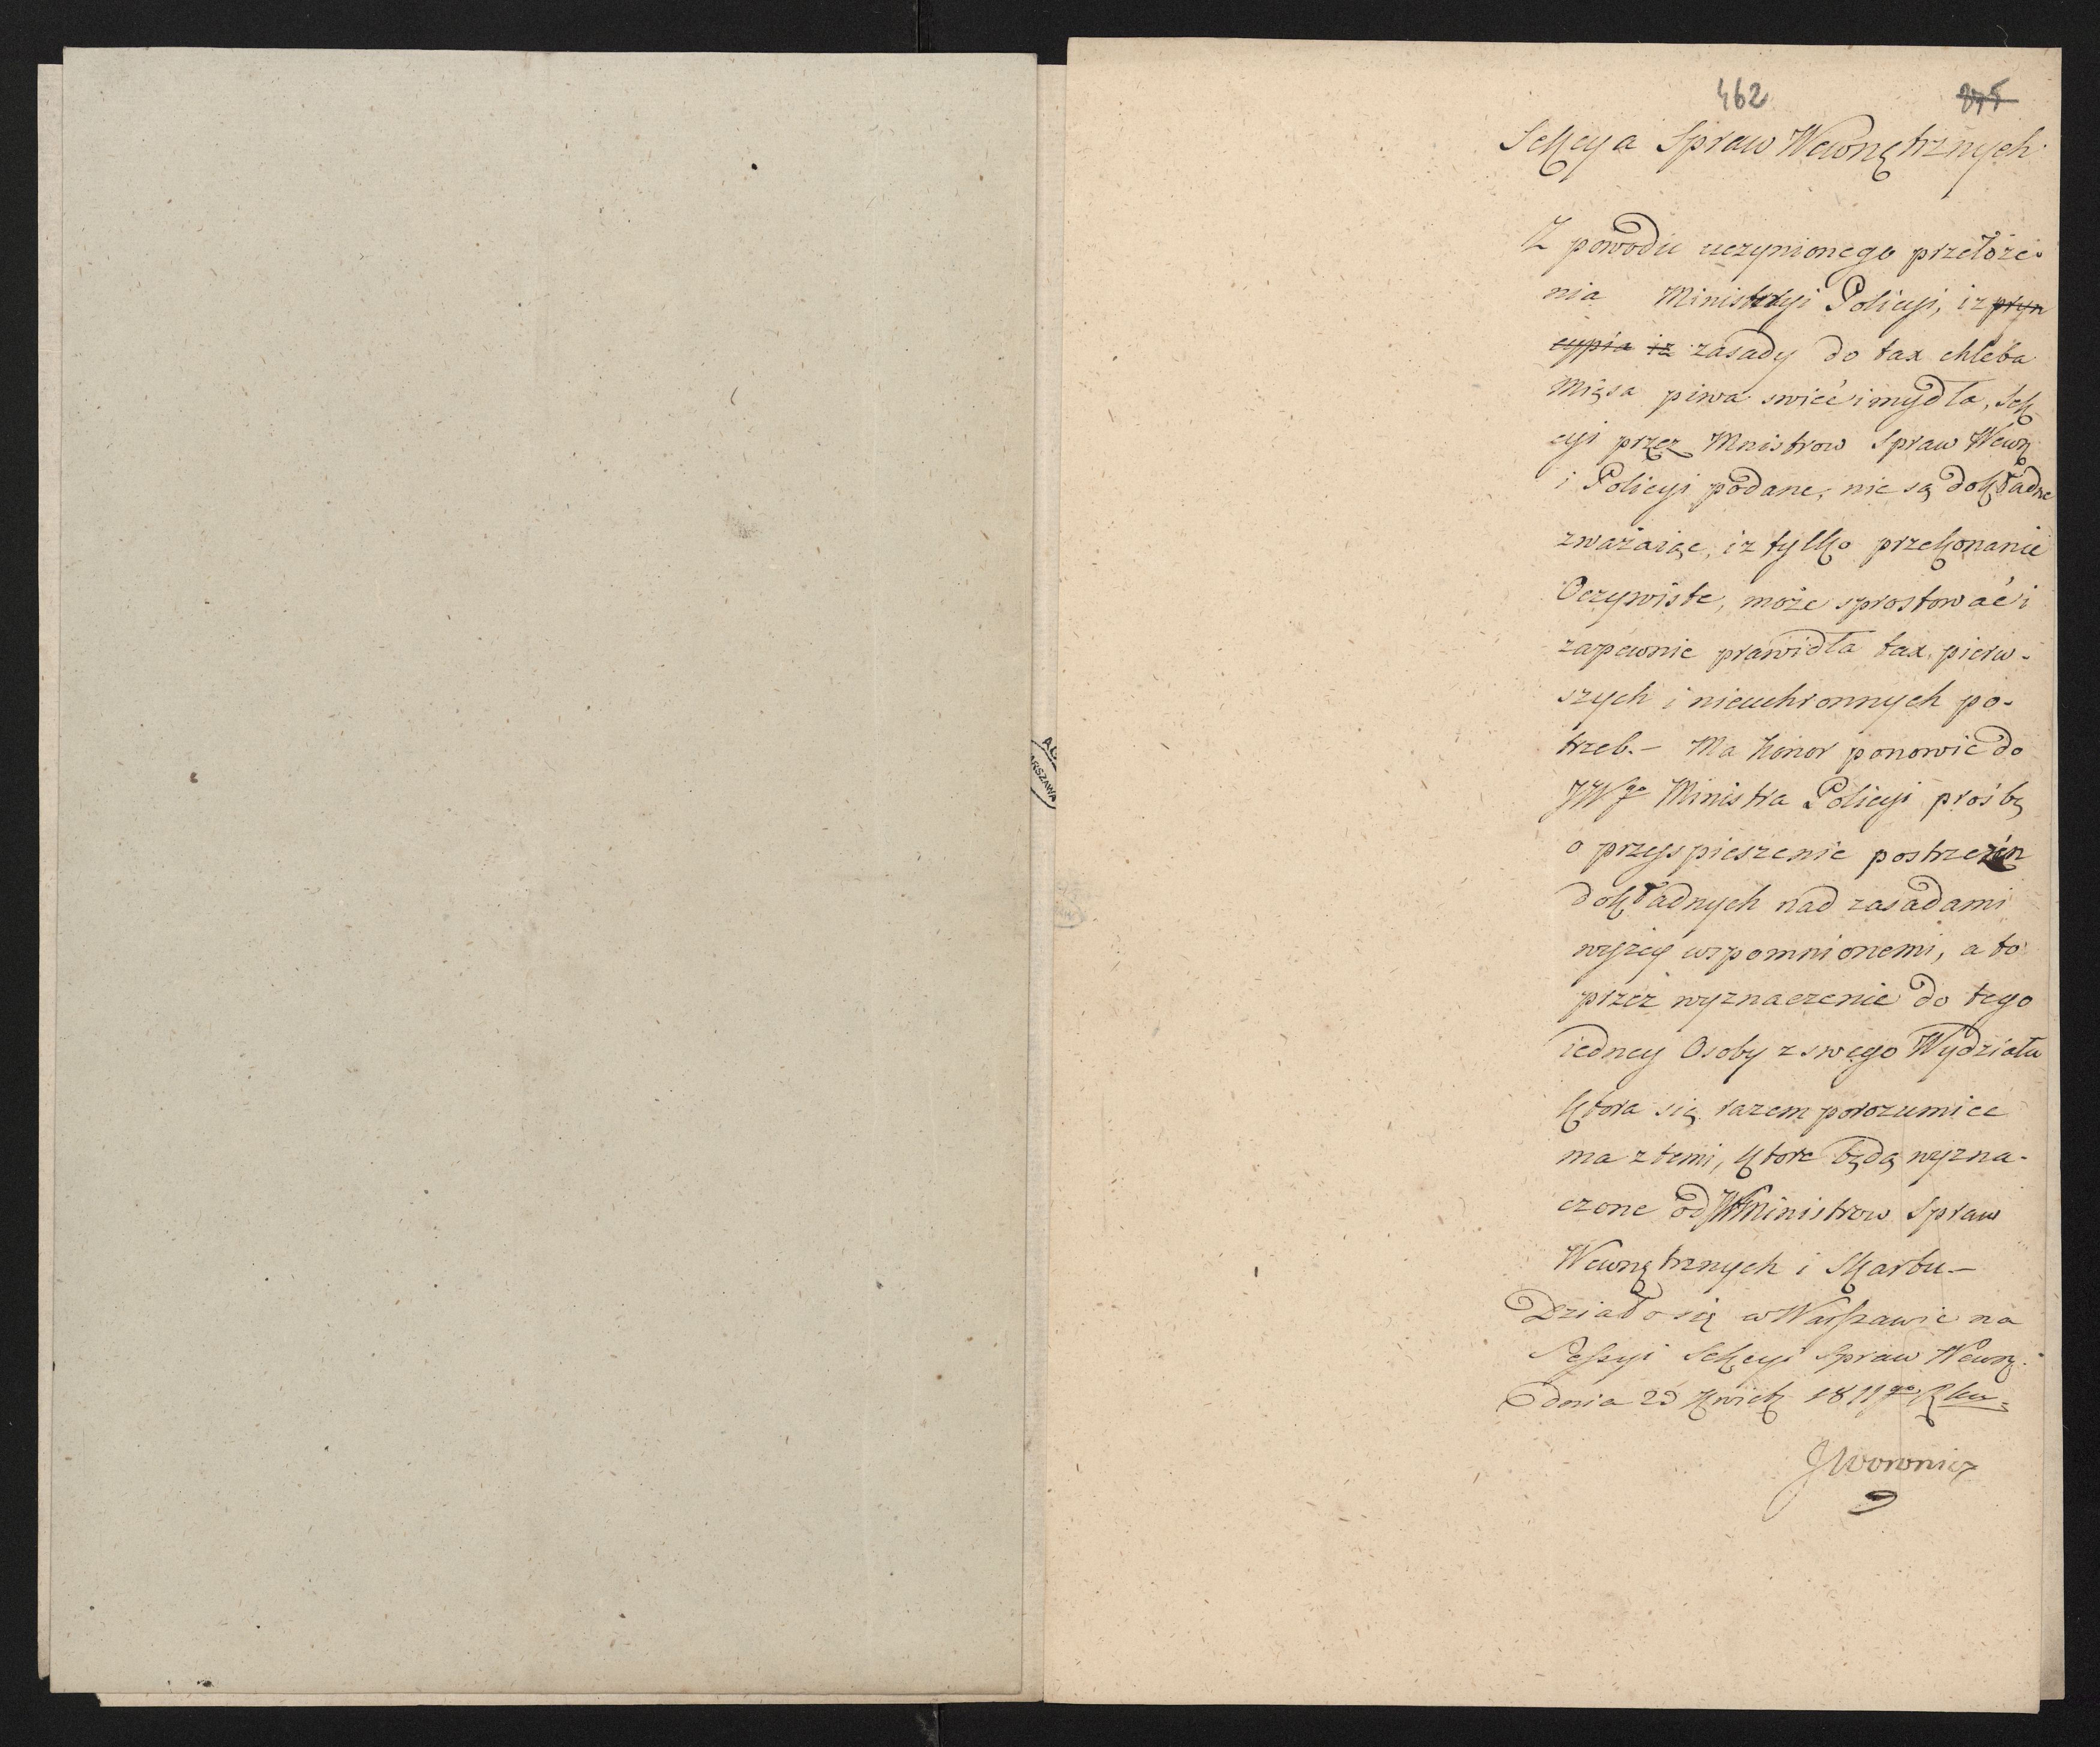 462
Sekcya Spraw Wewnętrznych.
Z powodu uczynionego przełoże-
nia Ministryi Policyi, iz pryn
cypia iz zasady do tax chleba
Mięsa piwa swiéc i mydła, Sek
cyi przez Mnistrow Spraw Wewn
i Policyi podane, nie są dokładne
zważaiąc, iz tylko przekonanie
Oczywiste, może sprostować i
zapewnic prawidła tax pierw-
szych i nieuchronnych po-
trzeb.- Ma honor ponowic do
JWgo Ministra Policyi prośbę
o przyspieszenie postrzeżeń
dokładnych nad zasadami
wyżey wspomnionemi, a to
przez wyznaczenie do tego
iedney Osoby z swego Wydziału
ktora się razem porozumiec
ma z temi, ktore będą wyzna-
czone od JWMinistrow Spraw
Wewnętrznych i Skarbu-
Działo się w Warszawie na
Sessyi Sekcyi Spraw Wewn.
dnia 23 Kwiet 1811go Rku
JWoronicz
WARSZAWA